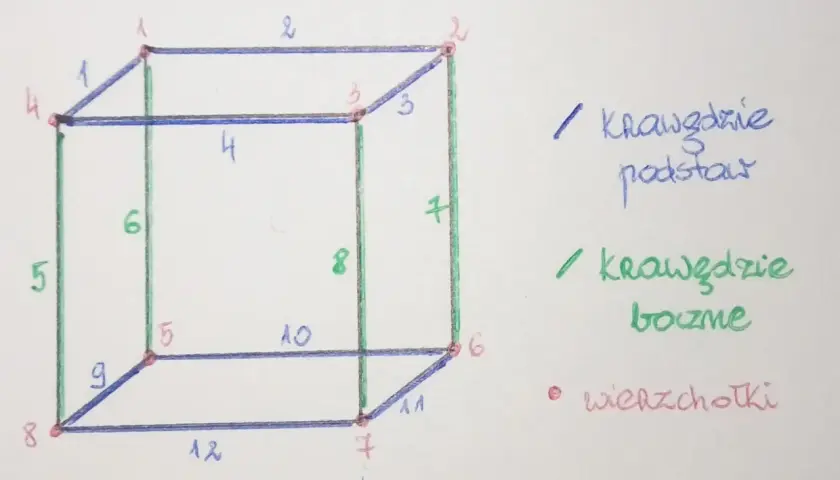 1 2 2
1 3 3
4
4
6 7
5 8
5 10 6
9
11
8 7
12
krawędzie
podstaw
krawędzie
boczne
wierzchołki